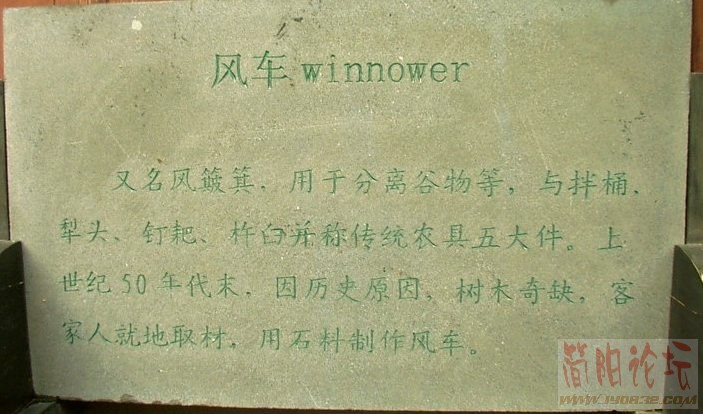 风车 winnower
又名风簸箕，用于分离谷物等，与拌桶、
犁头、钉耙、杵臼并称传统农具五大件。上
世纪50年代末，因历史原因，树木奇缺，客
家人就地取材，用石料制作风车。
简阳论坛
WWW.JY0832.COM